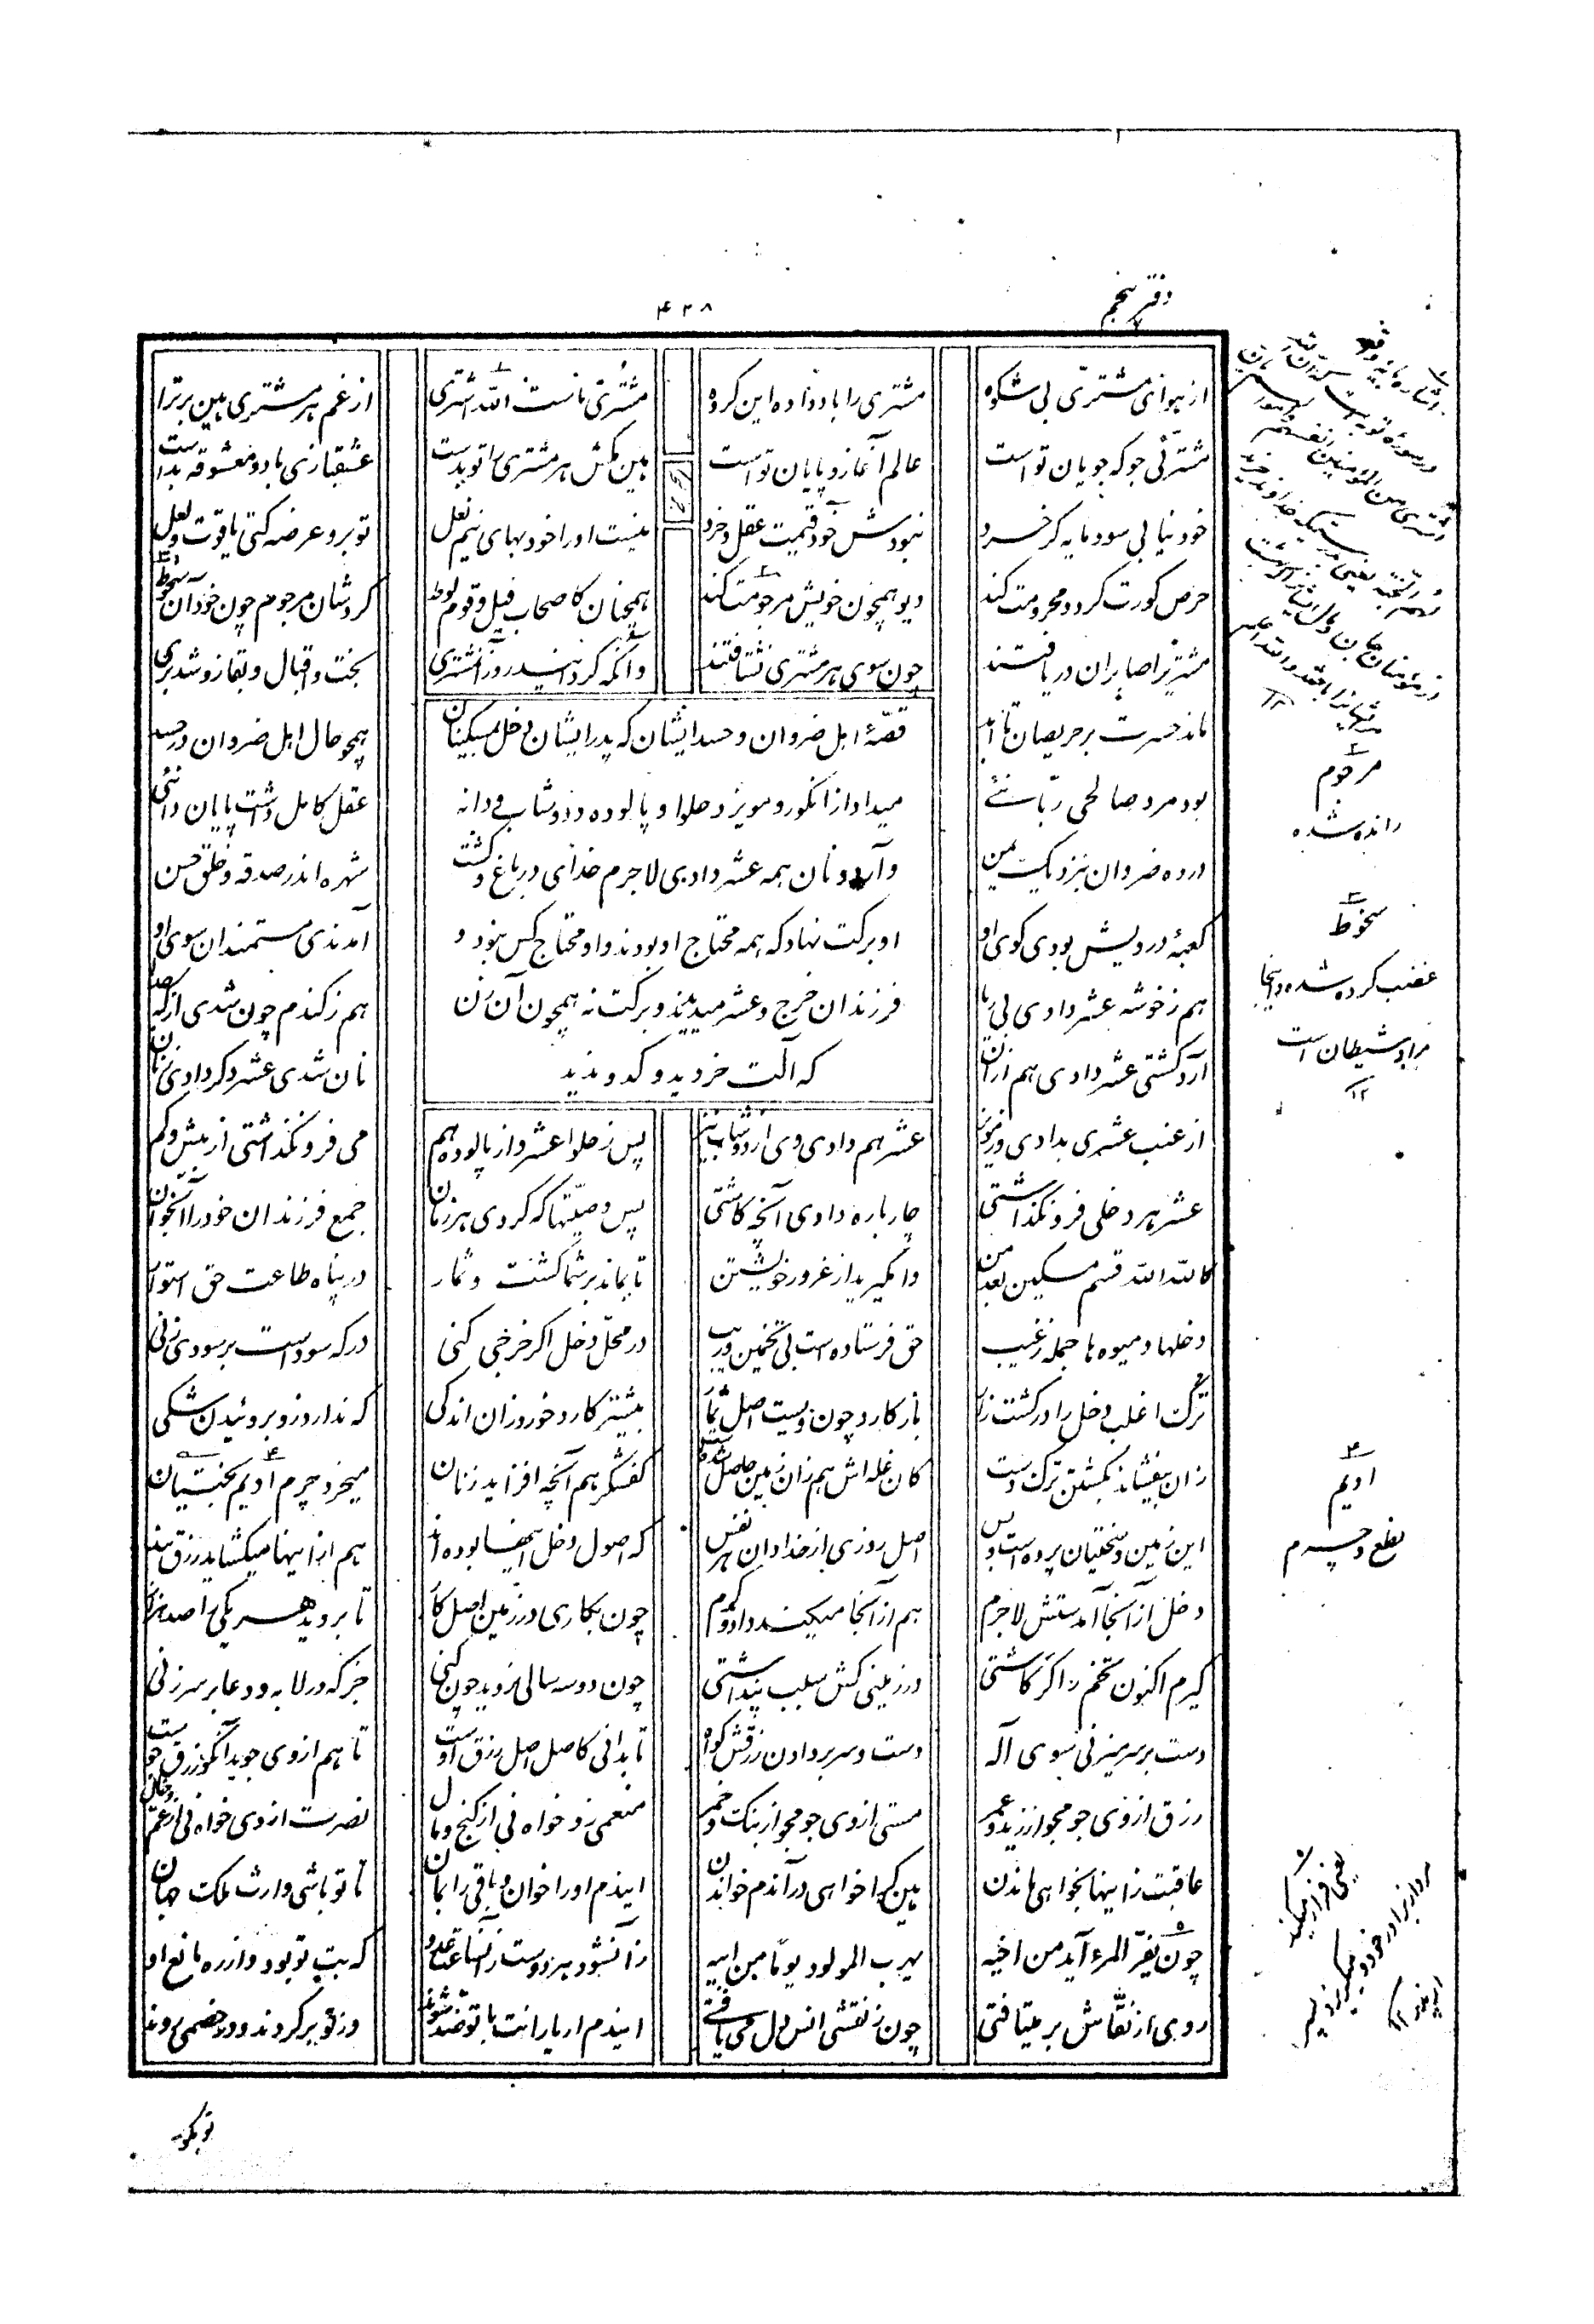 دفتر پنجم
۴۳۸
از هوای مشتریّ بی شکوه مشتری را باد داده این گروه مشتریّ ماست الله اشتری از غم هر مشتری هین برترا
مشتریّی جو که جویان تو است عالم آغاز و پایان تو است هین مکش هر مشتری را تو بدست عشقبازی با دو معشوقه بد است
خود نیابی سود و مایه گر خرد نبودش خود قیمت عقل و خرد نیست او را خود بهای نیم نعل تو برو عرضه کنی یاقوت و لعل
حرص کورت کرد و محرومت کند دیو همچون خویش مرجومت کند همچنان کاصحاب فیل و قوم لوط کردشان مرجوم چون خود آن سخوط
مشتریرا صابران دریافتند چون سوی هر مشتری نشتافتند وانکه گردانید رو زان مشتری بخت و اقبال و بقا زو شد بری
ماند حسرت بر حریصان تا ابد همچو حال اهل ضروان در حسد
قصّهٔ اهل ضروان و حسد ایشان که پدر ایشان دخل بمسکینان
میداد از انگور و مویز و حلوا و پالوده و دوشاب و دانه
و آرد و نان همه عشر دادی لاجرم خدای در باغ و کشت
او برکت نهاد که همه محتاج او بودند و او محتاج کس نبود و
فرزندان خرج و عشر میدیدند و برکت نه همچون آن زن
که آلت خر دید و کدو ندید
بود مرد صالحی ربّانئے عقل کامل داشت پایان دانئی
در ده ضروان بنزدیک یمن شهره اندر صدقه و خلق حسن
کعبهٔ درویش بودی کوی او آمدندی مستمندان سوی او
هم ز خوشه عشر دادی بی ریا هم ز گندم چون شدی از که جدا
آرد گشتی عشر دادی هم از آن نان شدی عشر دگر دادی ز نان
از عنب عشری بدادی وز مویز عشر هم دادی وی از دوشاب نیز پس ز حلوا عشر و از پالوده هم می فرو نگذاشتی از بیش و کم
عشر هر دخلی فرو نگذاشتی چار باره دادی آنچه کاشتی پس وصیّتها که کردی هر زمان جمع فرزندان خود را آنجوان
کالله الله قسم مسکین بعد من وا مگیرید از غرور خویشتن تا بماند بر شما کشت و ثمار در پناه طاعت حق استوار
دخلها و میوه ها جمله ز غیب حق فرستاده است بی تخمین و ریب در محلّ دخل اگر خرجی کنی درگه سود است بر سودی زنی
ترک اغلب دخل را در کشت زار باز کارد چون ویست اصل ثمار بیشتر کارد خورد زان اندکی که ندارد در و بروئیدن شکی
زان بیفشاند بکشتن ترک دست کان غله اش هم زان زمین حاصل شده است کفشگر هم آنچه افزاید ز نان میخرد چرم و ادیم سختیان
که اصول دخل اینها بوده اند هم از اینها میگشاید رزق بند
دخل از آنجا آمدستش لاجرم هم از آنجا میکند داد و کرم
این زمین و سختیان پرده است و بس اصل روزی از خدا دان هر نفس چون بکاری در زمین اصل کار تا بروید هر یکی را صد هزار
گیرم اکنون تخم را گر کاشتی در زمینی کش سبب پنداشتی چون دو سه سال نروید چون کنی جز که در لابه و دعا بر سر زنی
دست بر سر میزنی سوی اله دست و سر بر دادن رزقش گواه تا بدانی کاصل اصل رزق اوست تا هم از وی جوید آنکو رزق جوست
رزق از وی جو مجو از زید و عمر مستی از وی جو مجو از بنگ و خمر منعمی زو خواه نی از گنج و مال نصرت از وی خواه نی از عمّ و خال
عاقبت زینها بخواهی ماندن هین کرا خواهی در آندم خواندن ایندم او را خوان و باقی را بمان تا تو باشی وارث ملک جهان
چون یفرّ المرء آید من اخیه یهرب المولود یوما من ابیه زان شود هر دوست آن ساعت عدو که بت تو بود و از ره مانع او
روی از نقّاش بر میتافتی چون ز نقشی انس دل می یافتی ایندم ار یارانت با تو ضد شوند وز تو برگردند و در خصمی روند
مرجوم
رانده شده
سخوط
غضب کرده شده و اینجا
مراد شیطان است
۱۲
ادیم
نطع و چرم
یعنی فرار میکند
مرد از برادر خود و میگریزد پسر
از پدر ۱۲
تو بگو